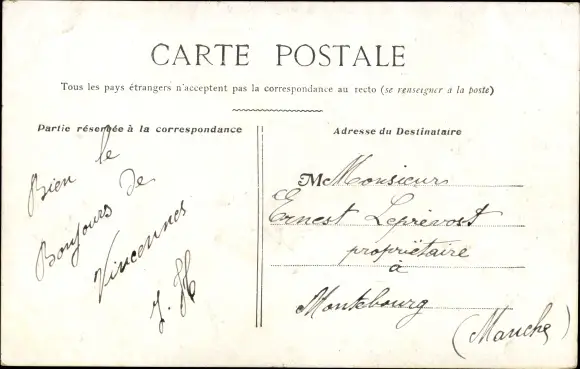 CARTE POSTALE
Tous les pays étrangers n'acceptent pas la correspondance au recto (se renseigner à la poste)
Partie réservée à la correspondance
Bien le
Bonjours de
Vincennes
J. H
Adresse du Destinataire
M Monsieur
Ernest Leprévost
propriétaire
à
Montebourg
(Manche)